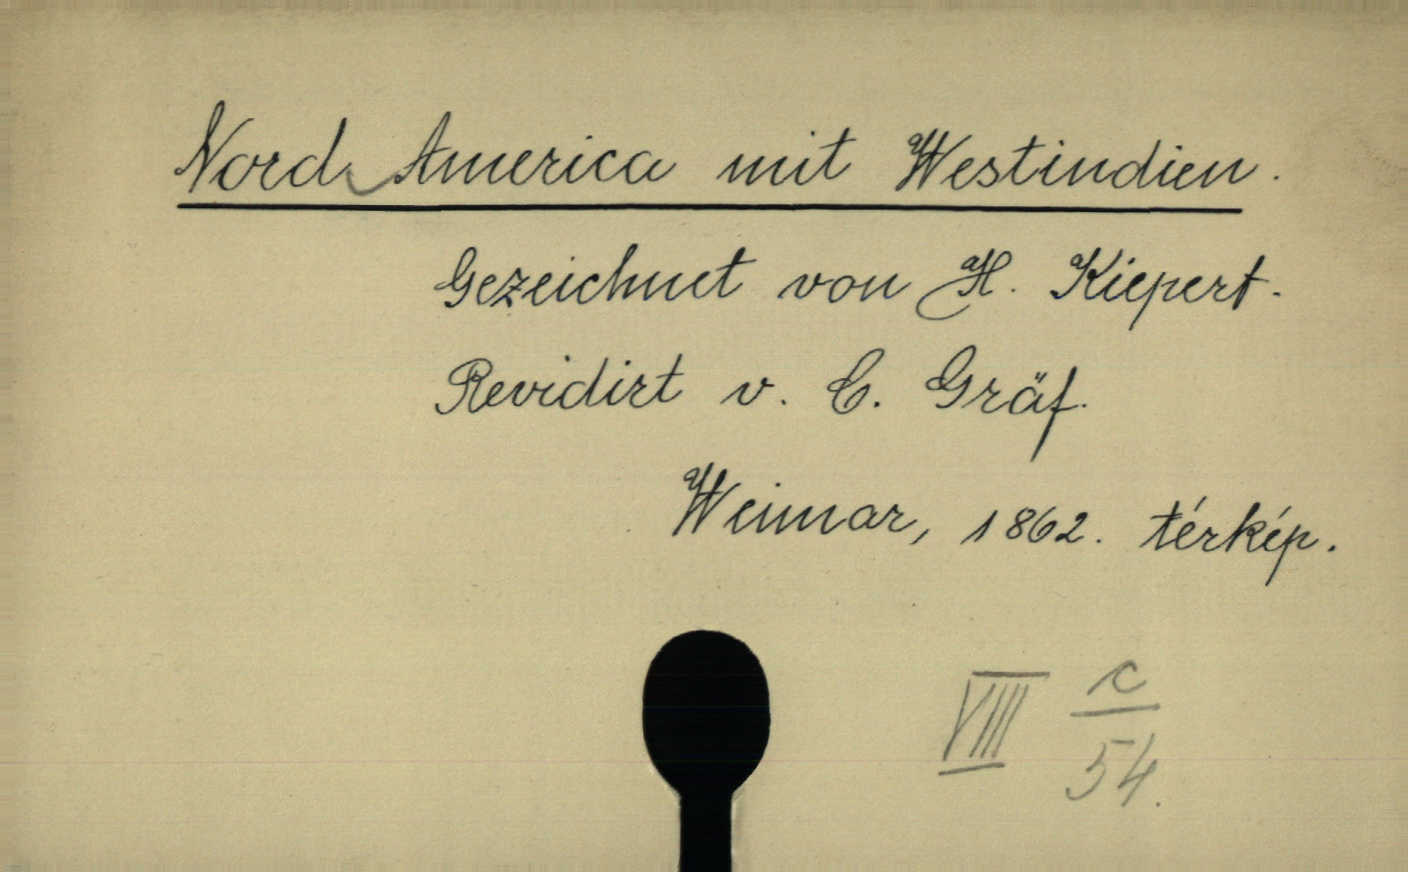 Nord America mit Westindien.
Gezeichnet von H. Kiepert.
Revidirt v. C. Gräf.
Weimar, 1862. térkép.
VIII c/54.